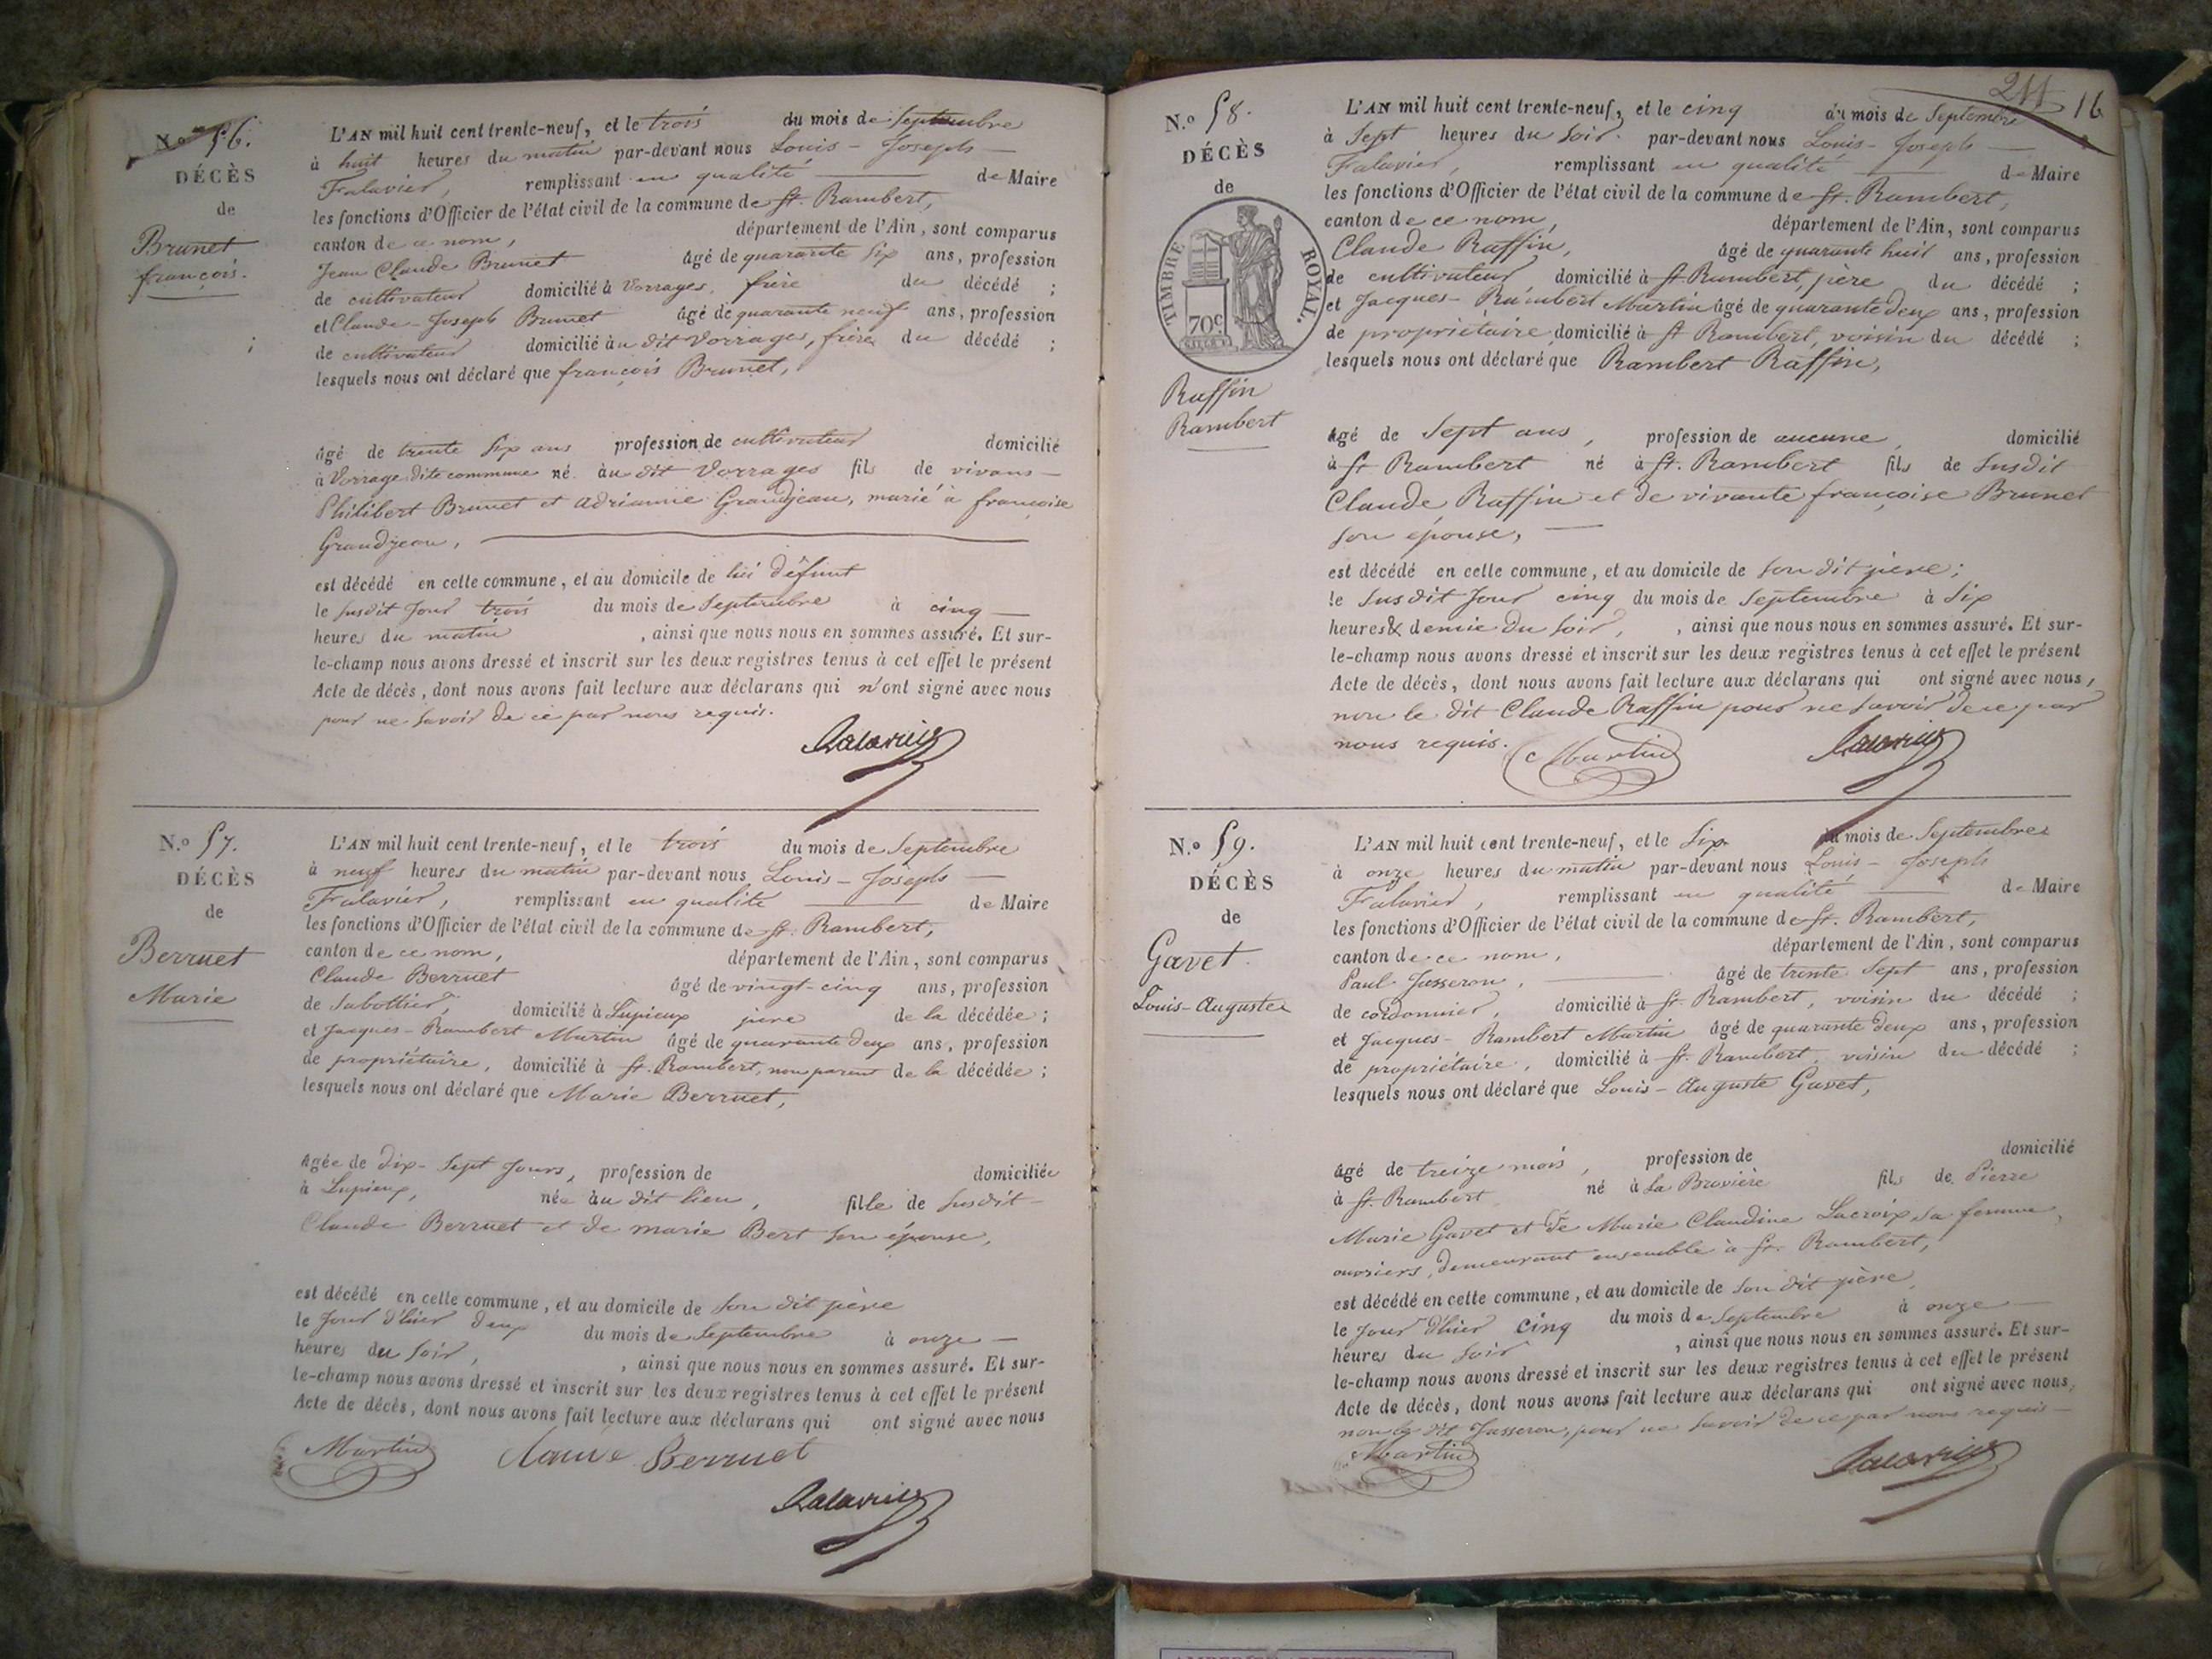 N.o 56.
DÉCÈS
de
Brunet
françois.
L'AN mil huit cent trente-neuf, et le trois du mois de Septembre
à huit heures du matin par-devant nous Louis - Joseph
Falavier, remplissant en qualité de Maire
les fonctions d'Officier de l'état civil de la commune de St. Rambert,
canton de ce nom, département de l'Ain, sont comparus
Jean Claude Brunet âgé de quarante Six ans, profession
de cultivateur domicilié à Vorrages, frère du décédé ;
et Claude - Joseph Brunet âgé de quarante neuf ans, profession
de cultivateur domicilié au dit Vorrages, frère du décédé ;
lesquels nous ont déclaré que françois Brunet,
âgé de trente Six ans profession de cultivateur domicilié
à Vorrage dite commune né au dit Vorrages fils de vivans
Philibert Brunet et adrianne Grandjean, marié à françoise
Grandjean,
est décédé en cette commune, et au domicile de lui défunt
le susdit Jour trois du mois de Septembre à cinq
heures du matin, ainsi que nous nous en sommes assuré. Et sur-
le-champ nous avons dressé et inscrit sur les deux registres tenus à cet effet le présent
Acte de décès, dont nous avons fait lecture aux déclarans qui n'ont signé avec nous
pour ne savoir de ce par nous requis.
Falavier
N.o 57.
DÉCÈS
de
Berruet
Marie
L'AN mil huit cent trente-neuf, et le trois du mois de Septembre
à neuf heures du matin par-devant nous Louis - Joseph
Falavier, remplissant en qualité de Maire
les fonctions d'Officier de l'état civil de la commune de St. Rambert,
canton de ce nom, département de l'Ain, sont comparus
Claude Berruet âgé de vingt-cinq ans, profession
de Sabottier, domicilié à Lupieux père de la décédée ;
et Jacques - Rambert Martin âgé de quarante deux ans, profession
de propriétaire, domicilié à St. Rambert, non parent de la décédée ;
lesquels nous ont déclaré que Marie Berruet,
âgée de dix - Sept Jours, profession de domiciliée
à Lupieux, née au dit lieu, fille de Susdit
Claude Berruet et de marie Bert son épouse,
est décédé en cette commune, et au domicile de son dit père
le Jour d'hier deux du mois de Septembre à onze
heures du soir, , ainsi que nous nous en sommes assuré. Et sur-
le-champ nous avons dressé et inscrit sur les deux registres tenus à cet effet le présent
Acte de décès, dont nous avons fait lecture aux déclarans qui ont signé avec nous
Martin Claude Berruet
Falavier
211 16
N.o 58.
DÉCÈS
de
TIMBRE ROYAL.
70c
Raffin
Rambert
L'AN mil huit cent trente-neuf, et le cinq du mois de Septembre
à Sept heures du soir. par-devant nous Louis - Joseph
Falavier, remplissant en qualité de Maire
les fonctions d'Officier de l'état civil de la commune de St. Rambert,
canton de ce nom, département de l'Ain, sont comparus
Claude Raffin, âgé de quarante huit ans, profession
de cultivateur domicilié à St. Rambert, père du décédé ;
et Jacques - Rambert Martin âgé de quarante deux ans, profession
de propriétaire, domicilié à St Rambert, voisin du décédé ;
lesquels nous ont déclaré que Rambert Raffin,
âgé de Sept ans, profession de aucune, domicilié
à St Rambert né à St. Rambert fils de Susdit
Claude Raffin et de vivante françoise Brunet
son épouse,
est décédé en cette commune, et au domicile de son dit père ;
le Susdit Jour cinq du mois de Septembre à Six
heures & demie du soir, , ainsi que nous nous en sommes assuré. Et sur-
le-champ nous avons dressé et inscrit sur les deux registres tenus à cet effet le présent
Acte de décès, dont nous avons fait lecture aux déclarans qui ont signé avec nous,
non le dit Claude Raffin pour ne savoir de ce par
nous requis. Martin Falavier
N.o 59.
DÉCÈS
de
Gavet
Louis-auguste
L'AN mil huit cent trente-neuf, et le Six du mois de Septembre
à onze heures du matin par-devant nous Louis - Joseph
Falavier, remplissant en qualité de Maire
les fonctions d'Officier de l'état civil de la commune de St. Rambert,
canton de ce nom, département de l'Ain, sont comparus
Paul Jasseron, âgé de trente Sept ans, profession
de cordonnier, domicilié à St. Rambert, voisin du décédé ;
et Jacques - Rambert Martin âgé de quarante deux ans, profession
de propriétaire, domicilié à St. Rambert, voisin du décédé ;
lesquels nous ont déclaré que Louis - auguste Gavet,
âgé de treize mois, profession de domicilié
à St. Rambert né à La Brovière fils de Pierre
Marie Gavet et de Marie Claudine Lacroix, sa femme,
ouvriers, demeurant ensemble à St. Rambert,
est décédé en cette commune, et au domicile de son dit père,
le Jour d'hier cinq du mois de Septembre à onze
heures du soir, ainsi que nous nous en sommes assuré. Et sur-
le-champ nous avons dressé et inscrit sur les deux registres tenus à cet effet le présent
Acte de décès, dont nous avons fait lecture aux déclarans qui ont signé avec nous,
non le dit Jasseron, pour ne savoir de ce par nous requis
Martin Falavier